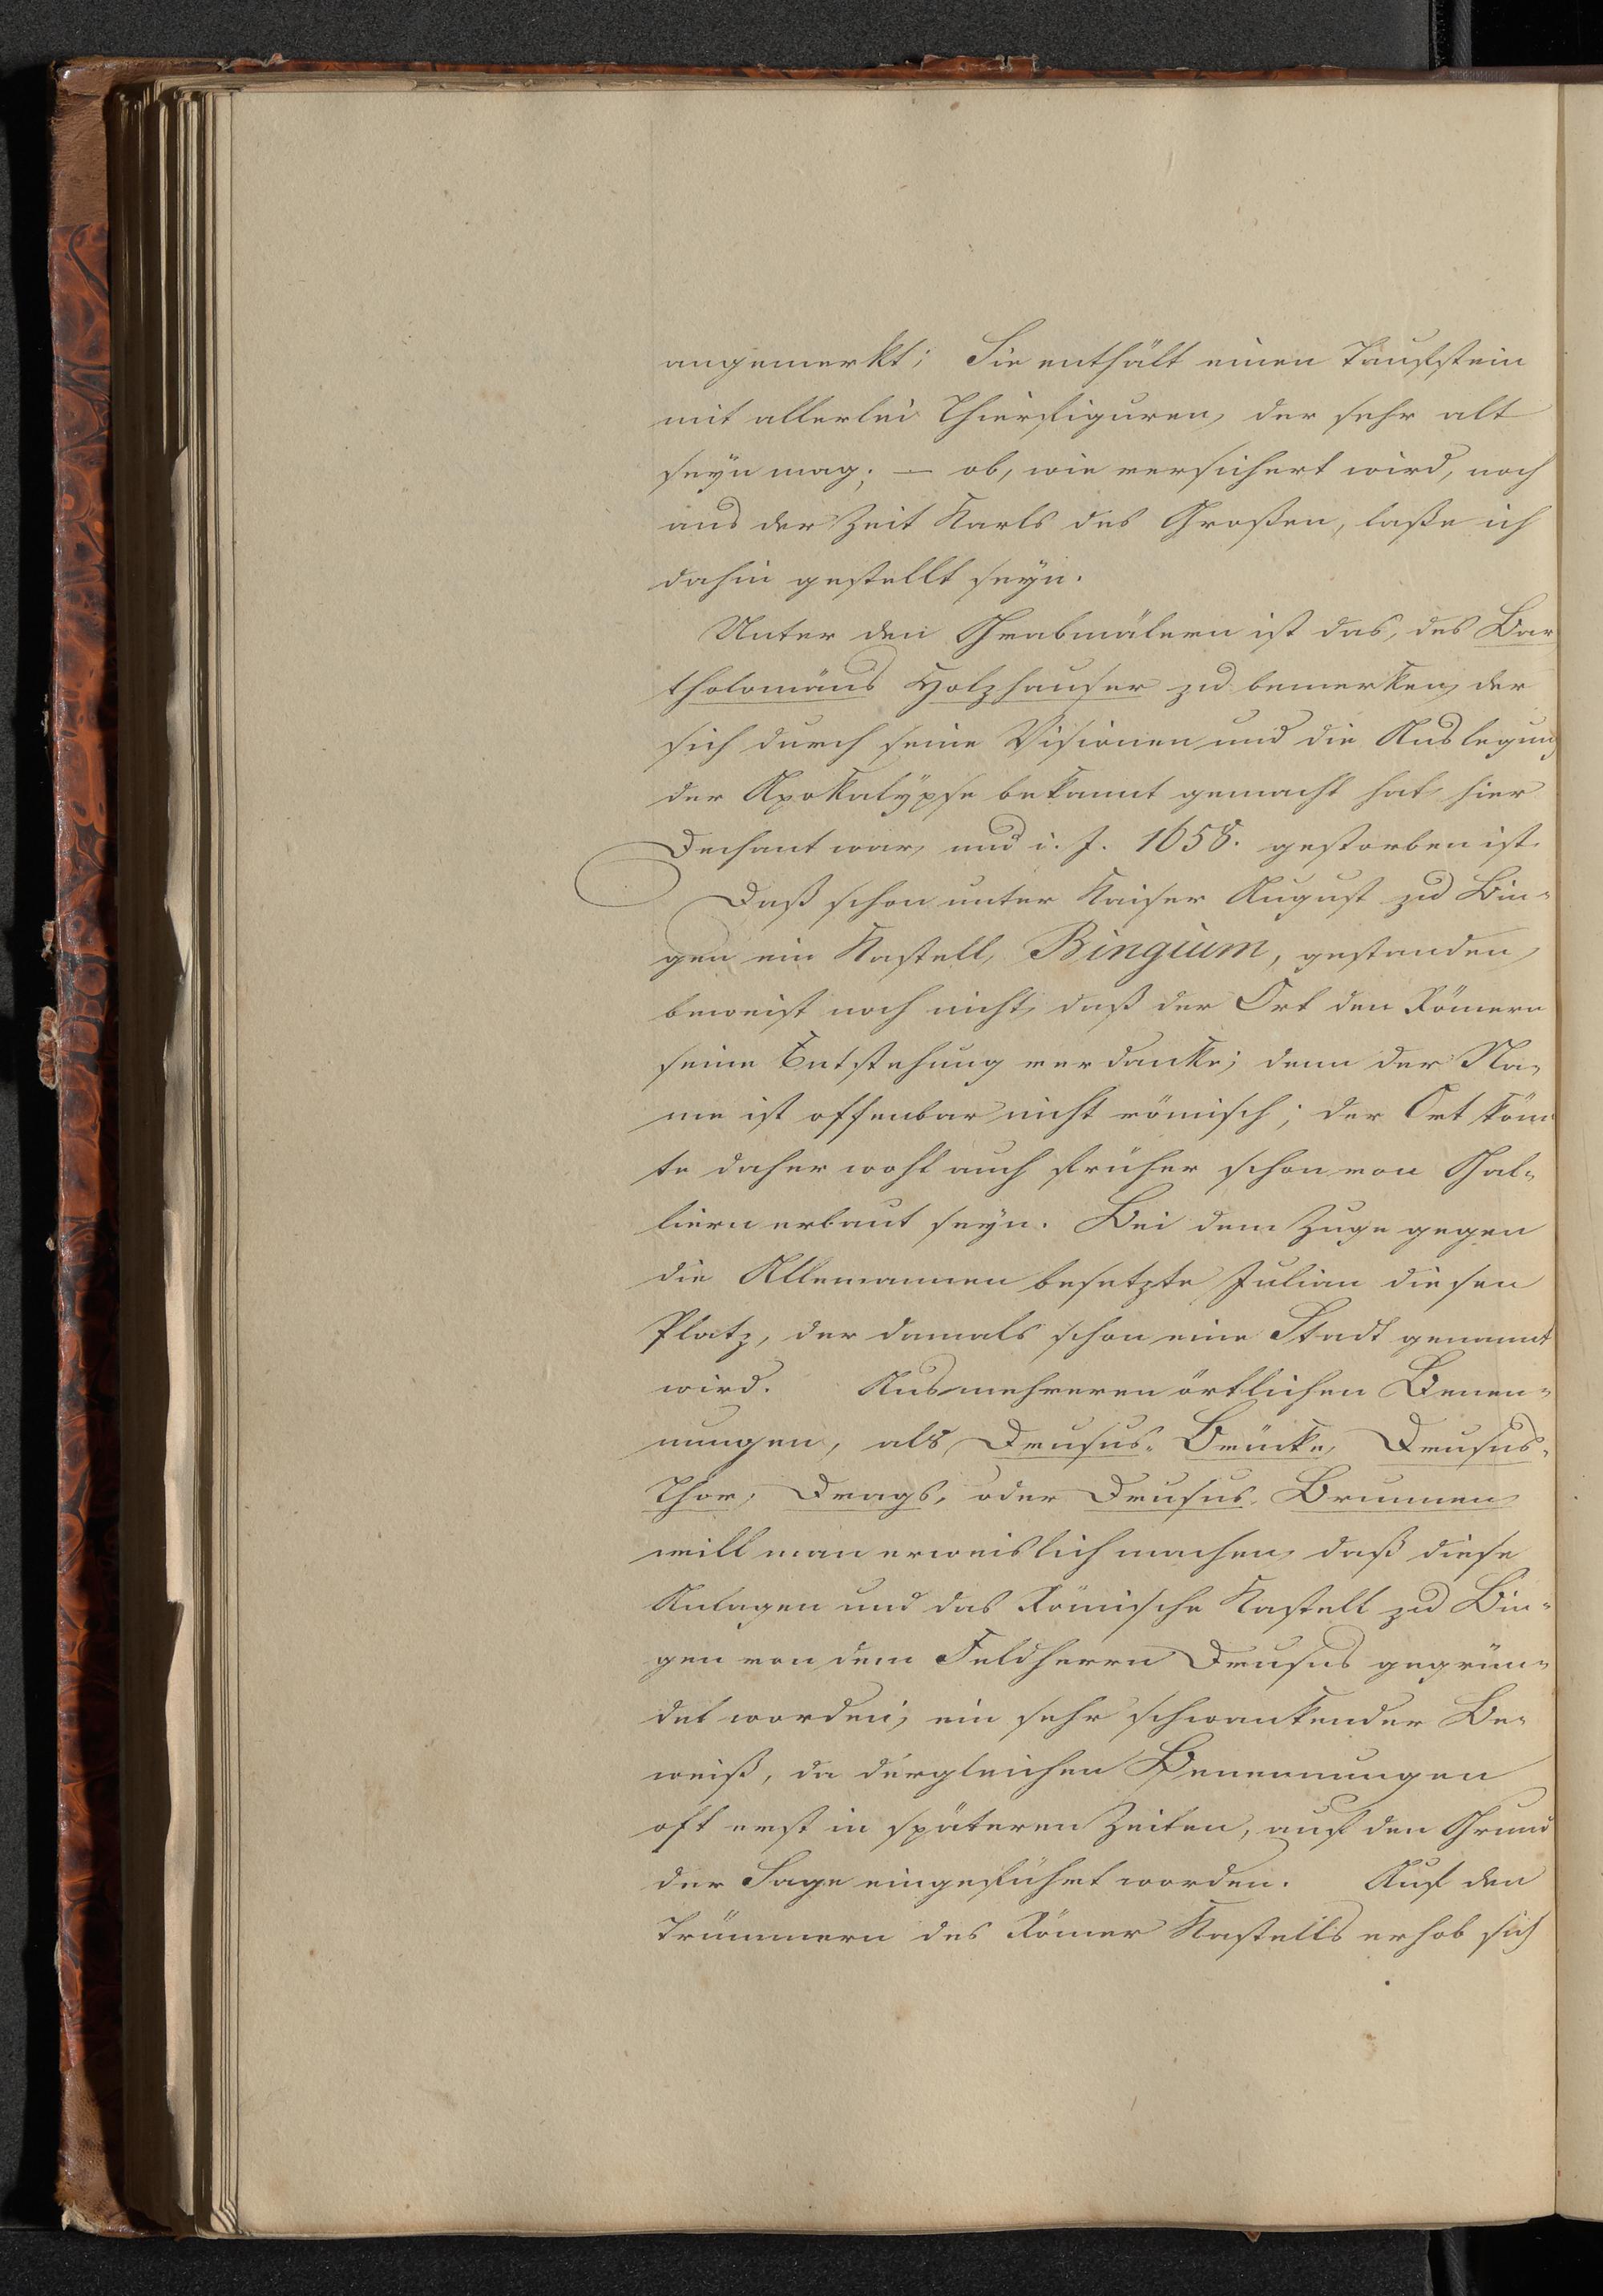 angemerkt; Sie enthält einen Taufstein
mit allerlei Thierfiguren, der sehr alt
seyn mag; — ob, wie versichert wird, noch
aus der Zeit Karls des Großen, laße ich
dahin gestellt seyn.
Unter den Grabmälern ist das, des Bar
tholomäus Holzhauser zu bemerken, der
sich durch seine Visionen und die Auslegung
der Apokalÿpse bekannt gemacht hat, hier
Dechant war, und i. J. 1658. gestorben ist.
Daß schon unter Kaiser August zu Bin-
gen ein Kastell, Bingium, gestanden,
beweist noch nicht, daß der Ort den Römern
seine Entstehung verdanke; denn der Na-
me ist offenbar nicht römisch; der Ort könn
te daher wohl auch früher schon von Gal-
liern erbaut seyn. Bei dem Zuge gegen
die Allemannen besetzte Julian diesen
Platz, der damals schon eine Stadt genannt
wird. Aus mehreren örtlichen Benen-
nungen, als Drusus-Brücke, Drusus-
Thor, Drags- oder Drusus-Brunnen
will man erweislich machen, daß diese
Anlagen und das Römische Kastell zu Bin-
gen von dem Feldherrn Drusus gegrün-
det worden; ein sehr schwankender Be-
weiß, da dergleichen Benennungen
oft erst in späteren Zeiten, auf den Grund
der Sage eingeführt worden. Auf den
Trümmern des Römer Kastells erhob sich